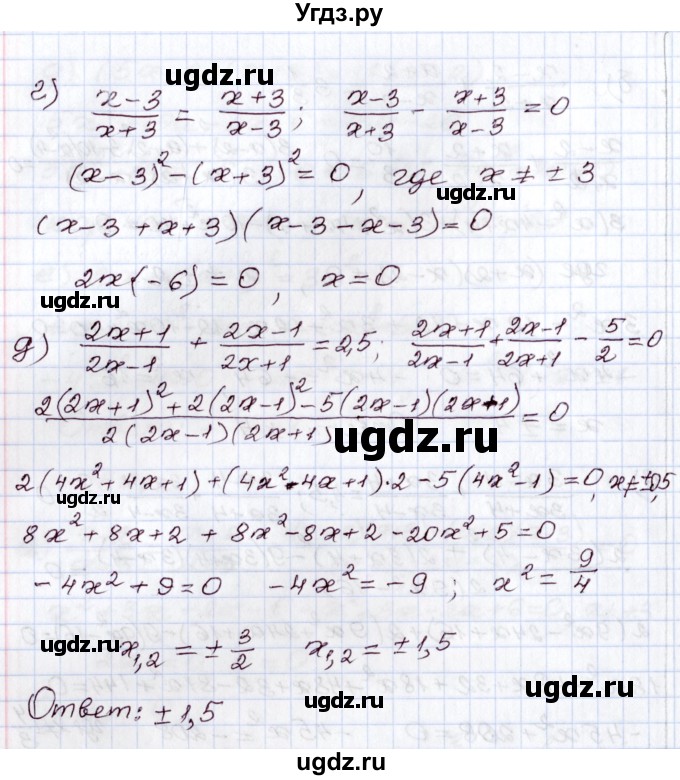 Угдз.ру
ugdz.ru
г) (x-3)/(x+3) = (x+3)/(x-3); (x-3)/(x+3) - (x+3)/(x-3) = 0
ugdz.ru
(x-3)² - (x+3)² = 0, где x ≠ ± 3
ugdz.ru
(x-3+x+3)(x-3-x-3)=0
2x(-6)=0, x=0
ugdz.ru
д) (2x+1)/(2x-1) + (2x-1)/(2x+1) = 2,5; (2x+1)/(2x-1) + (2x-1)/(2x+1) - 5/2 = 0
(2(2x+1)²+2(2x-1)²-5(2x-1)(2x+1))/(2(2x-1)(2x+1)) = 0
ugdz.ru
2(4x²+4x+1)+(4x²-4x+1)·2-5(4x²-1)=0, x≠±0,5
8x²+8x+2+8x²-8x+2-20x²+5=0
-4x²+9=0 -4x²=-9; x²=9/4
ugdz.ru
x₁,₂=±3/2 x₁,₂=±1,5
ugdz.ru
ugdz.ru
Ответ: ±1,5
ugdz.ru